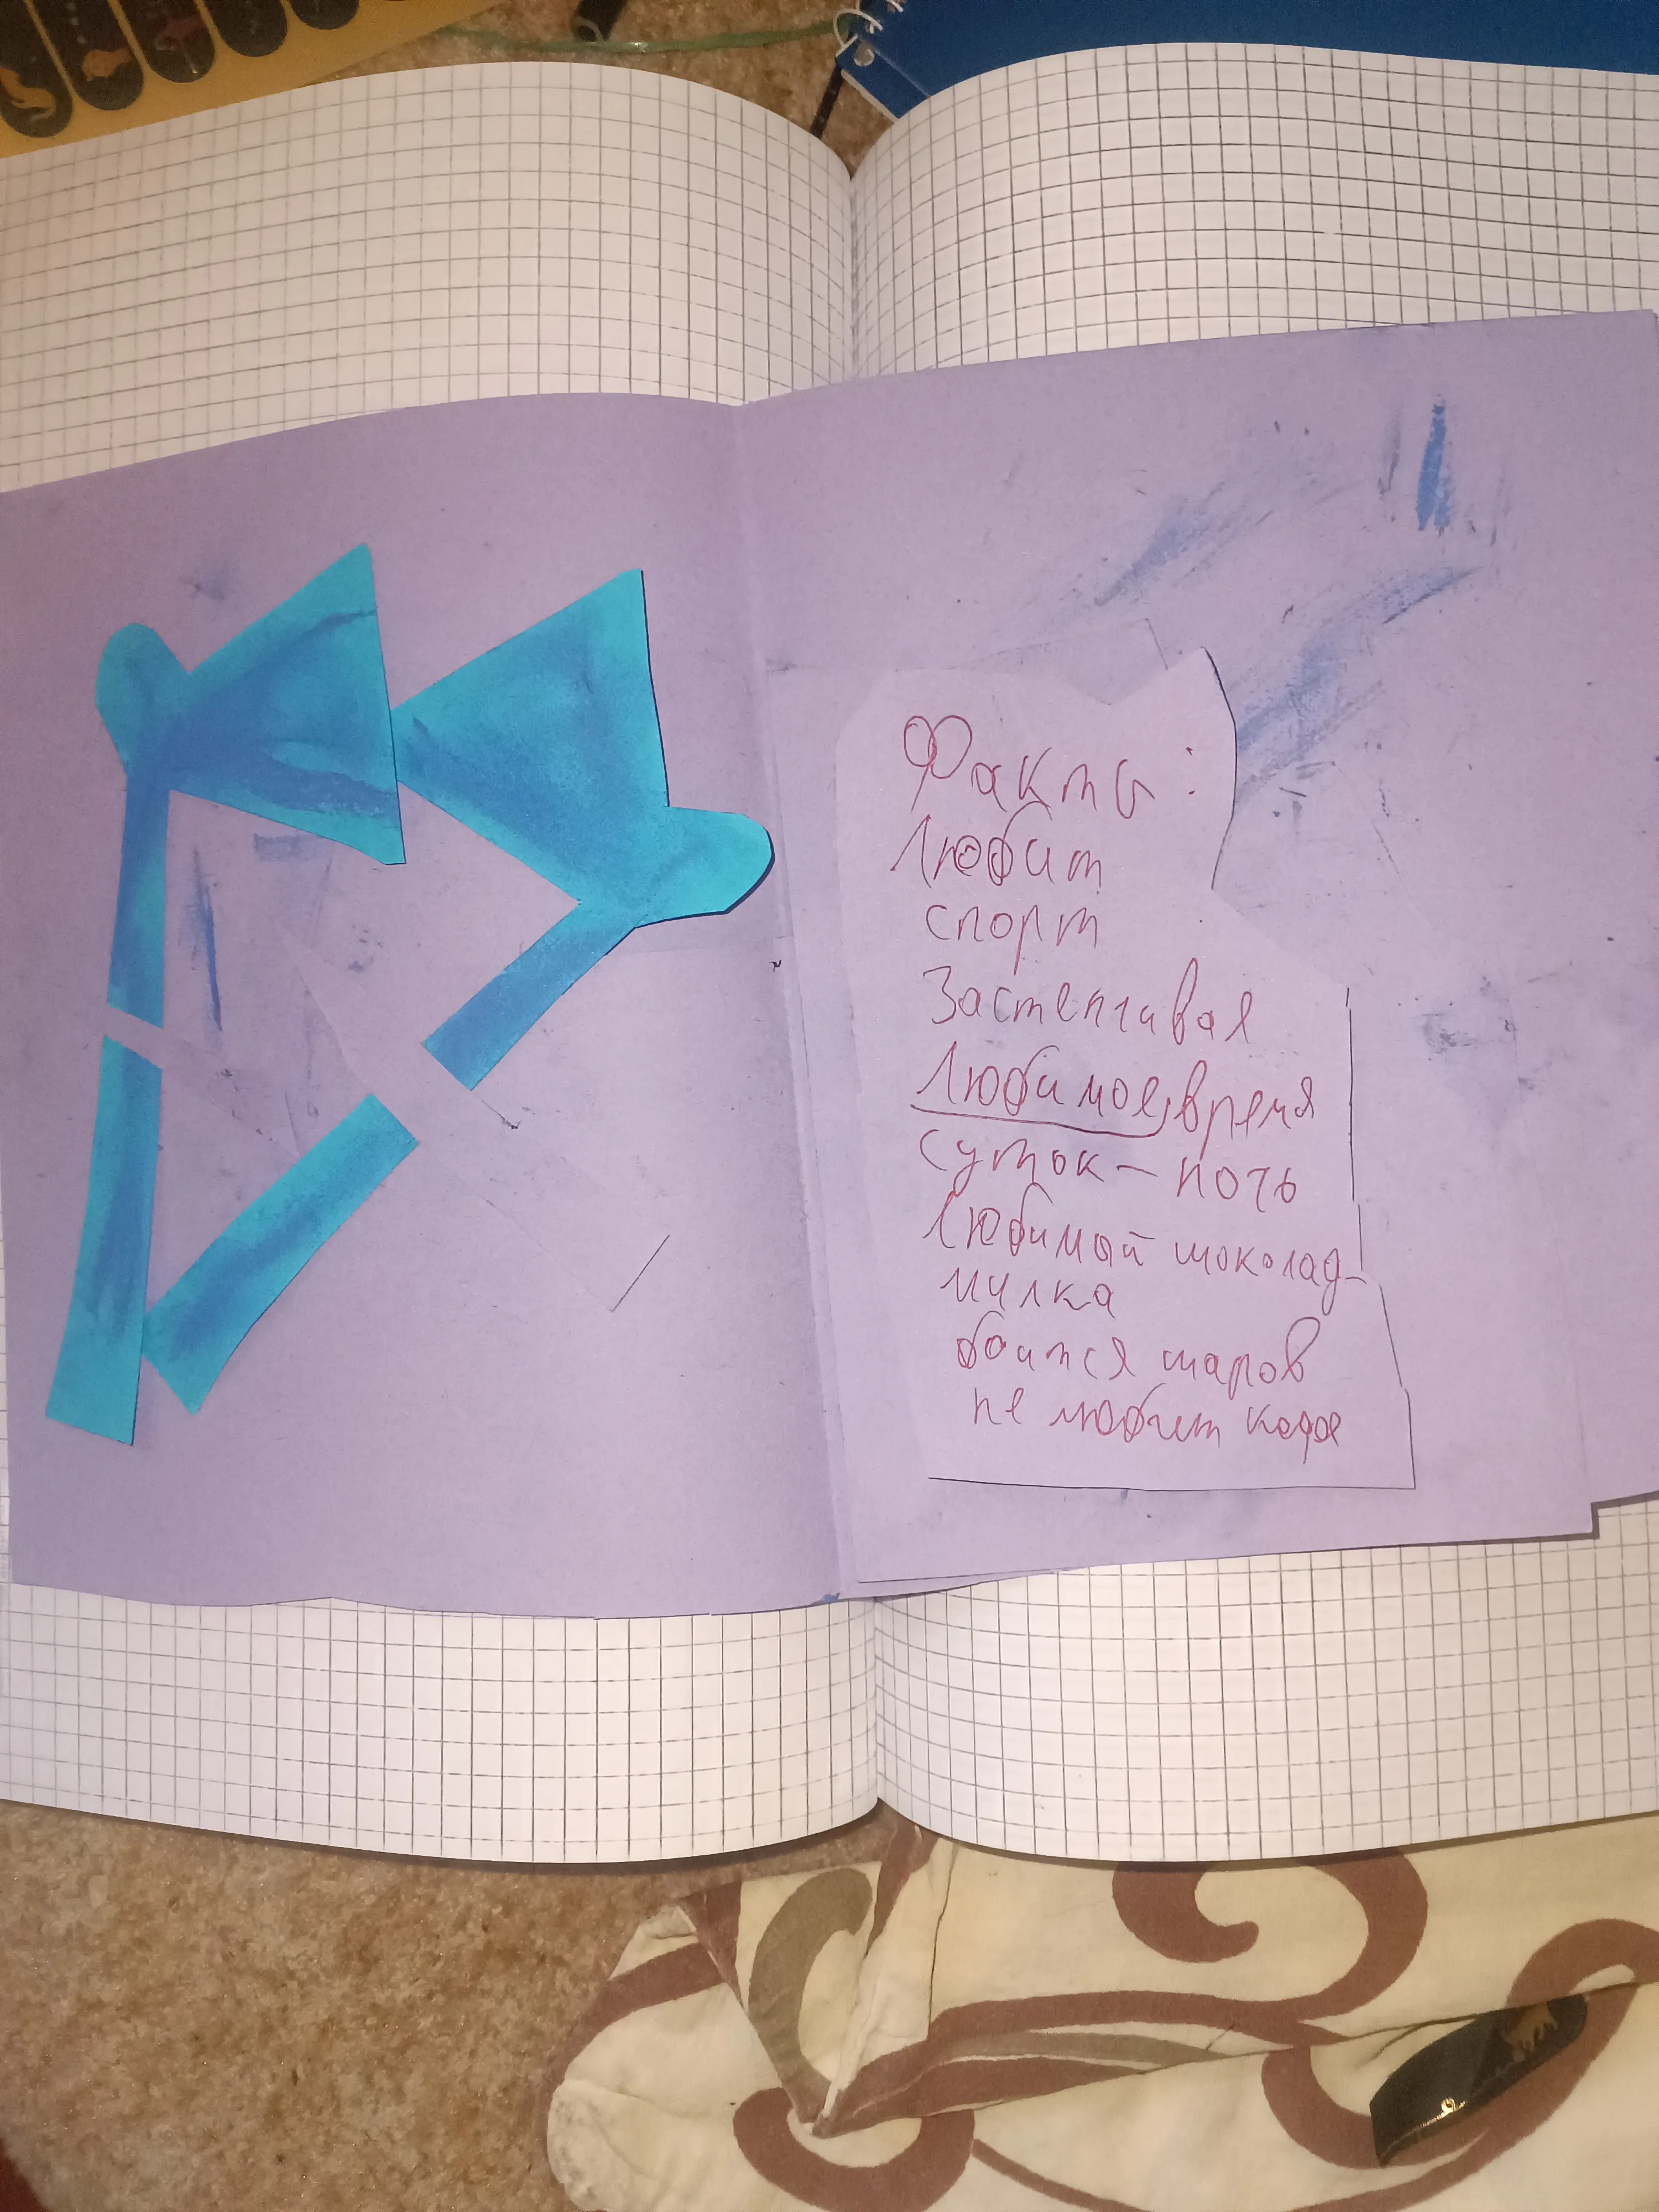 Факты:
Любит
спорт
Застенчивая
Любимое, время
суток - ночь
Любимый шоколад-
милка
боится шаров
не любит кофе